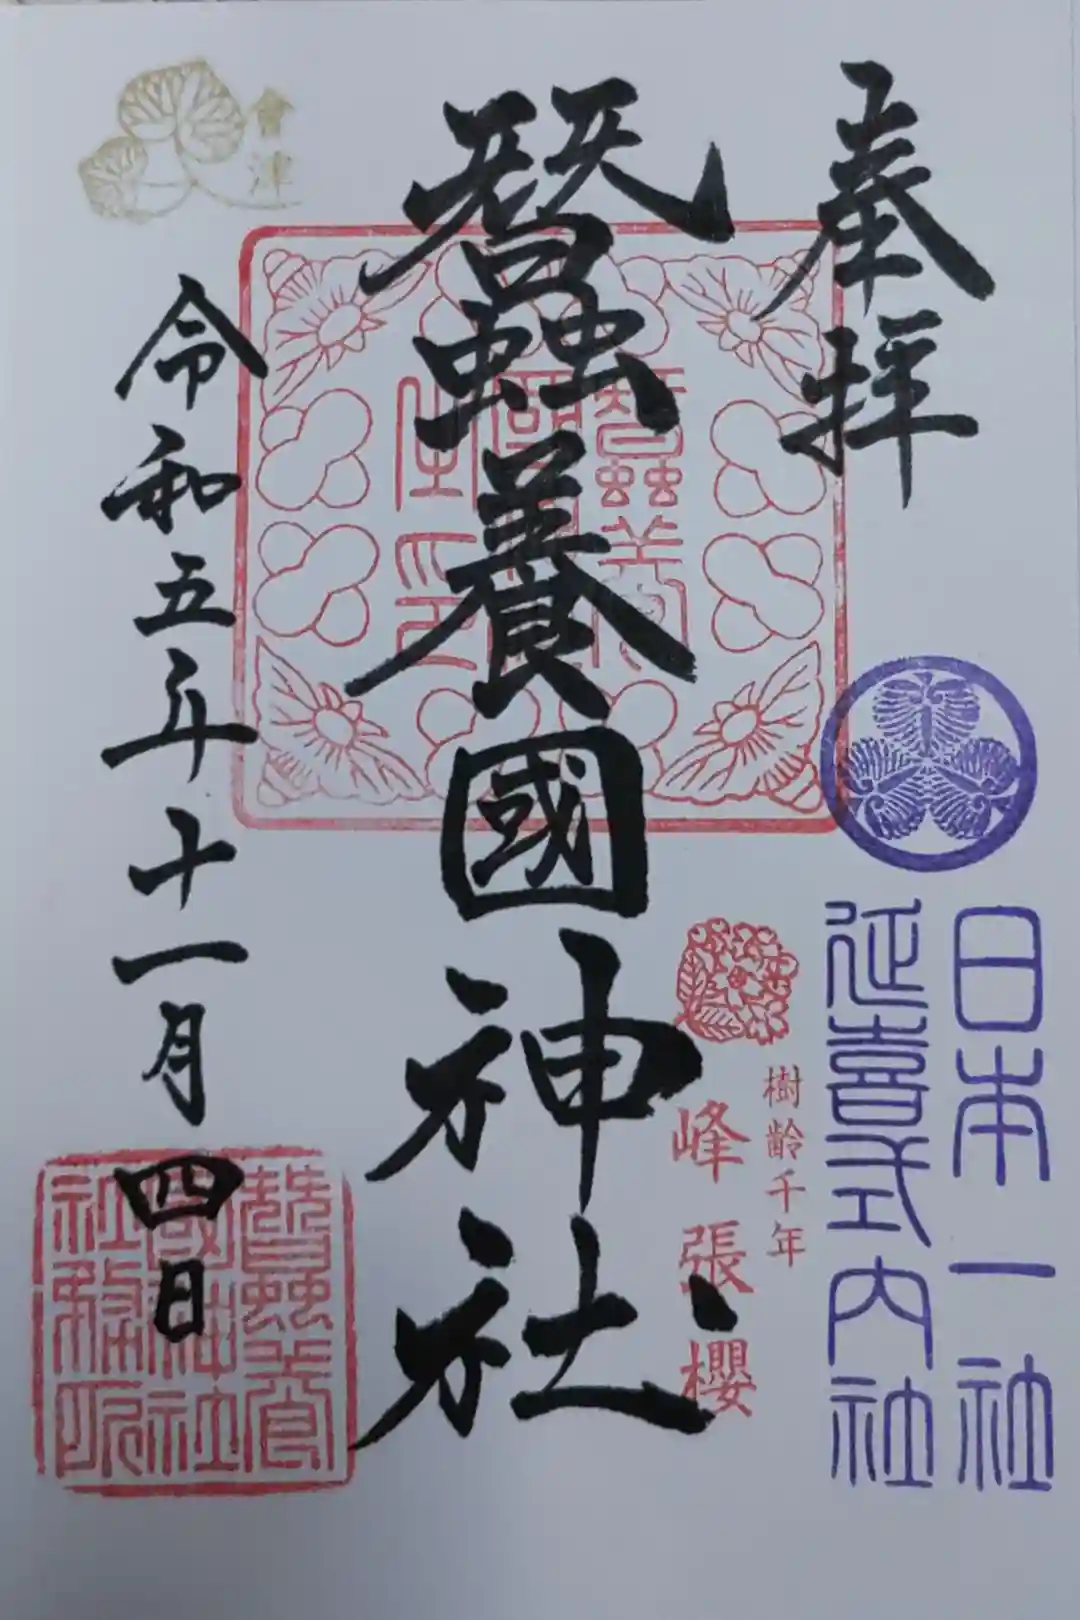 奉拝
日本一社
延喜式内社
樹齢千年
峰張櫻
蠶養國神社
會津
令和五年十一月四日
蠶養
國神社
社務所